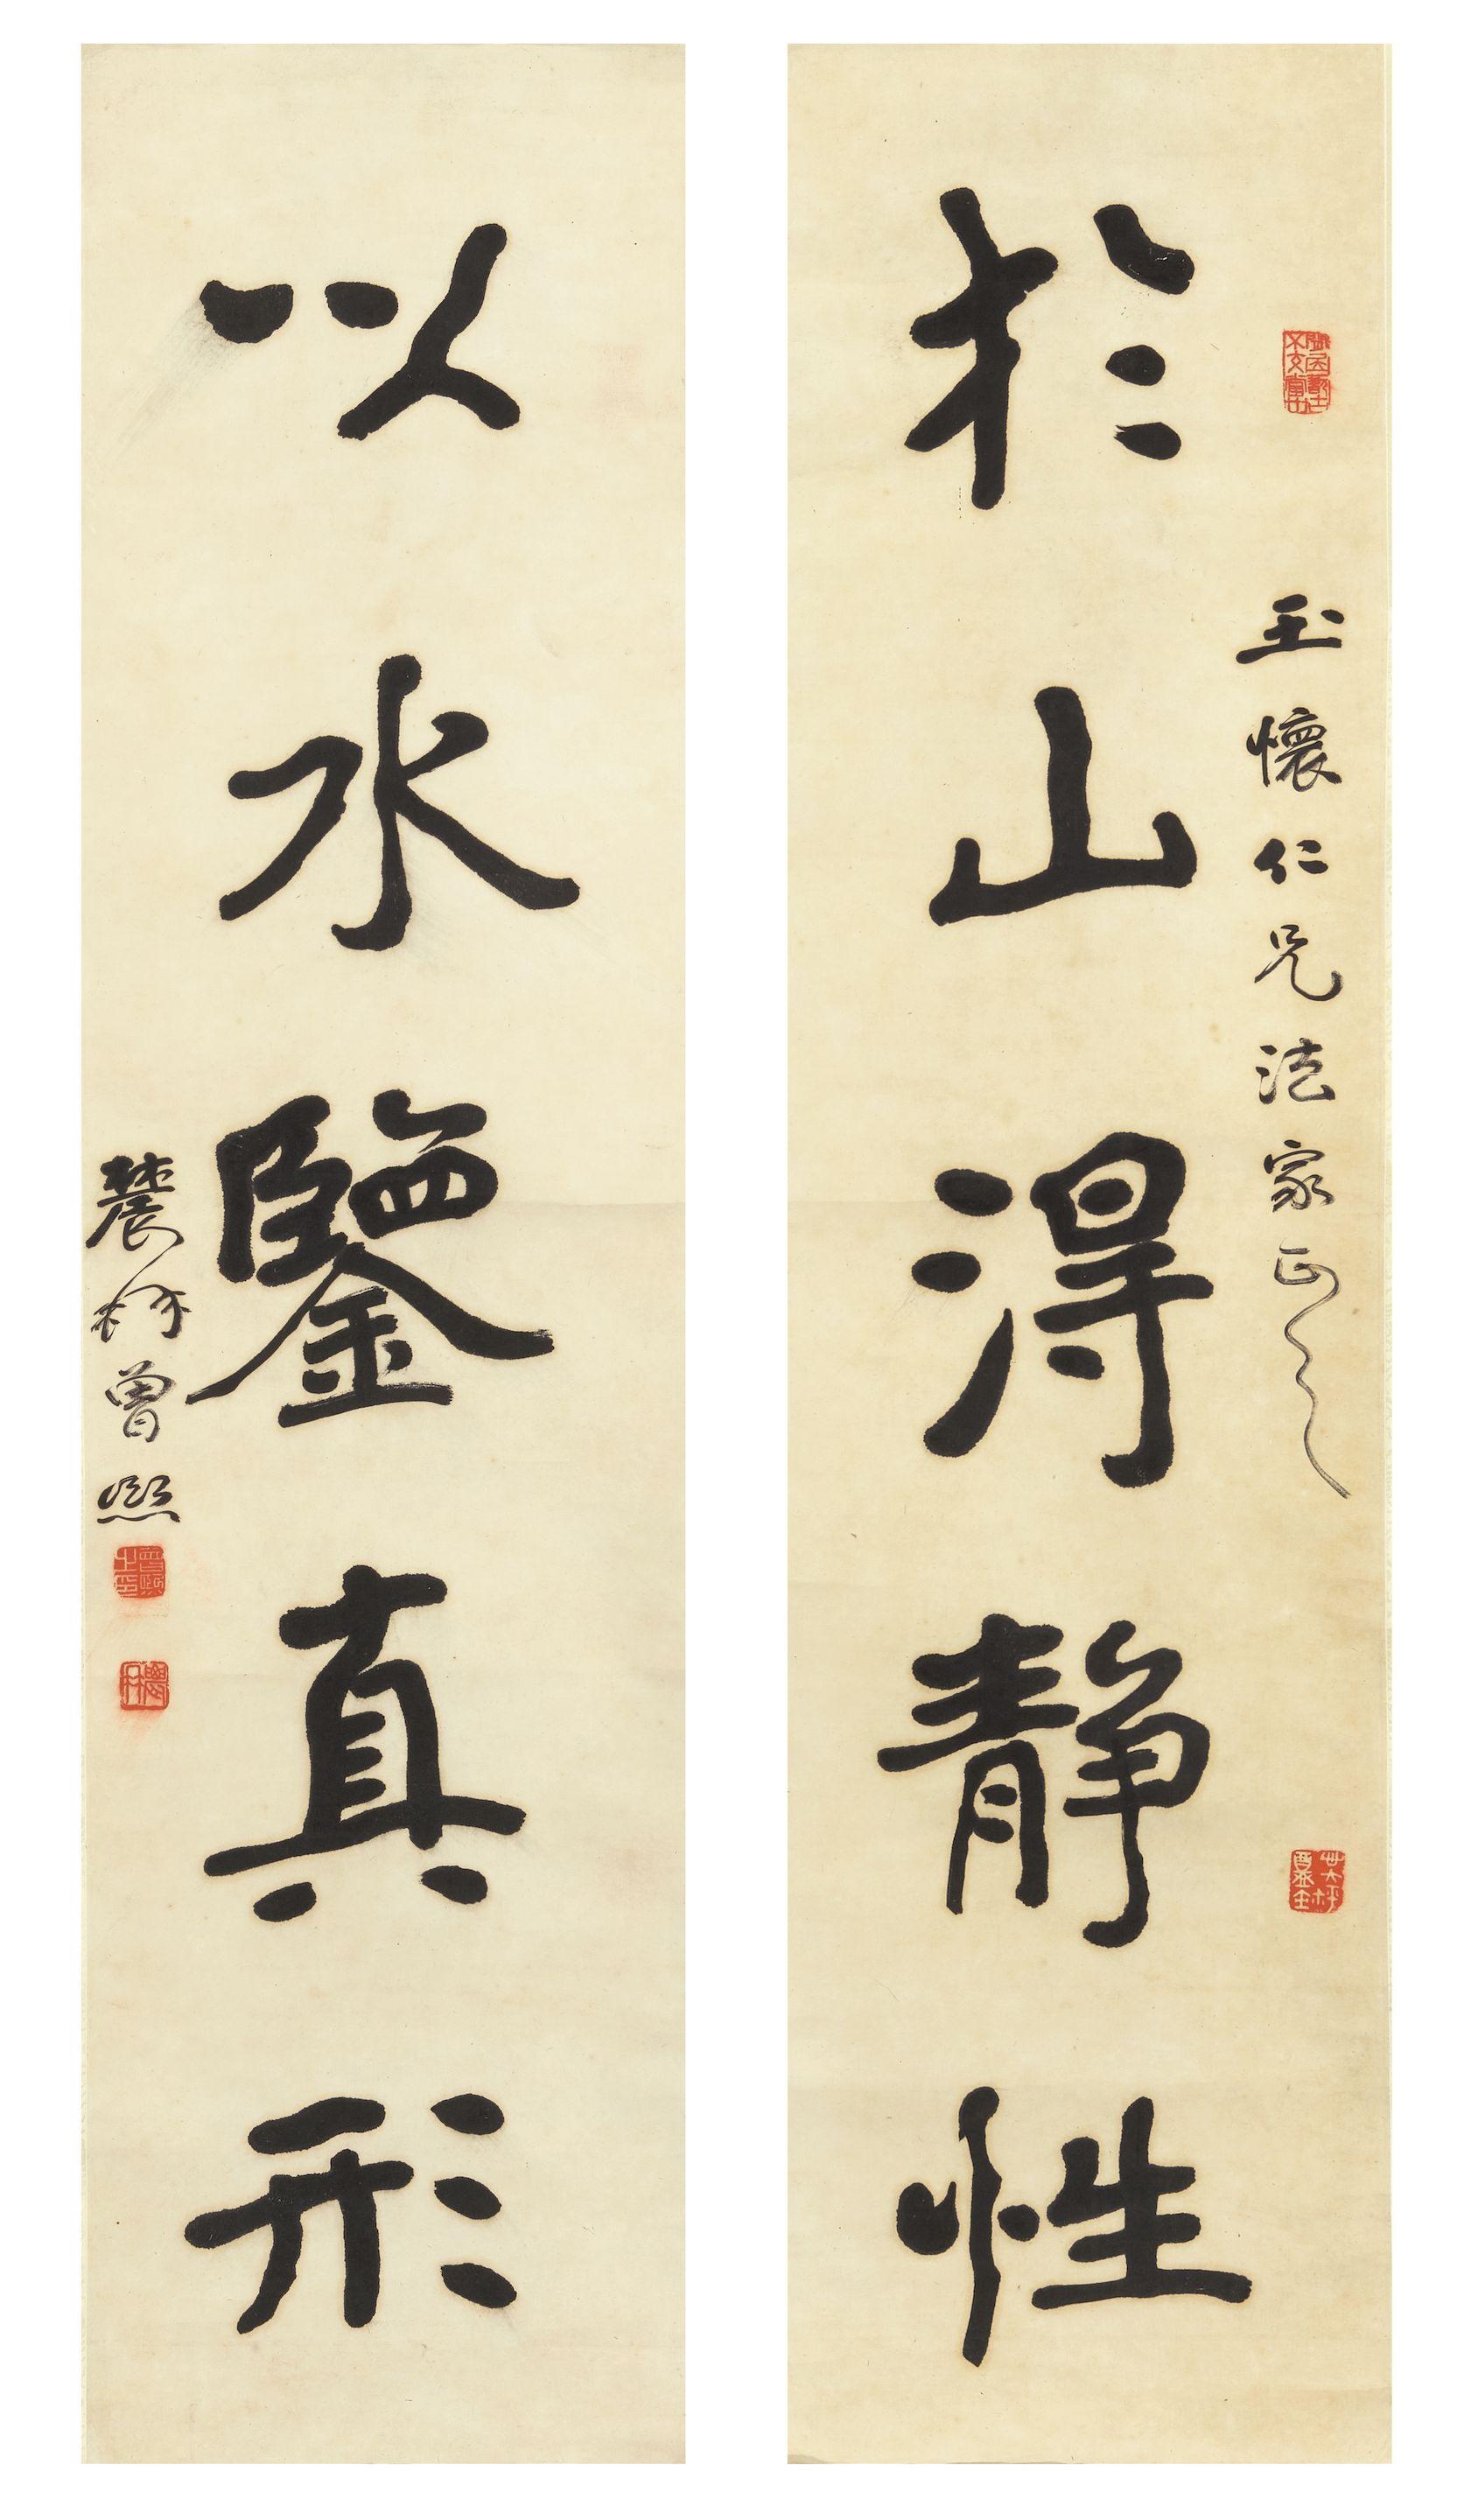 於山得靜性
玉懷仁兄法家正之
以水鑒真形
農髯曾熙